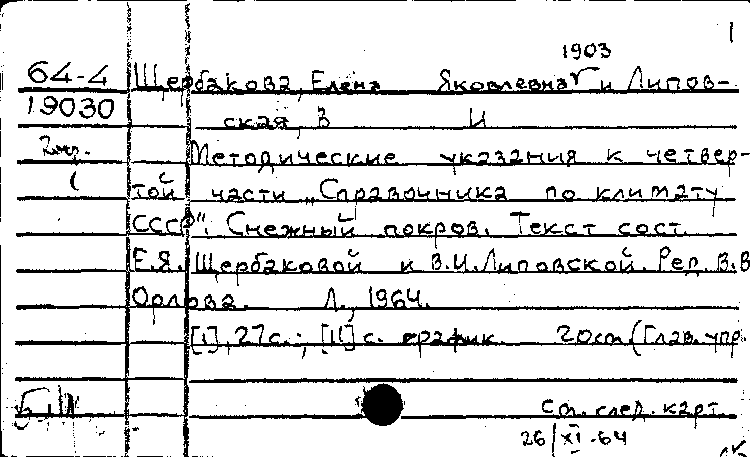 1
1903
64-4 Щербакова, Елена Яковлевна и Липов-
19030 ская, В И
Методические указания к четвер-
той части „Справочника по климату
СССР": Снежный покров. Текст сост.
Е.Я. Щербаковой и В.И. Липовской. Ред. В.В
Орлова. Л., 1964.
[1], 27с.; [11] с. график. 20см (Глав. упр.
См. след. карт.
26/XI-64